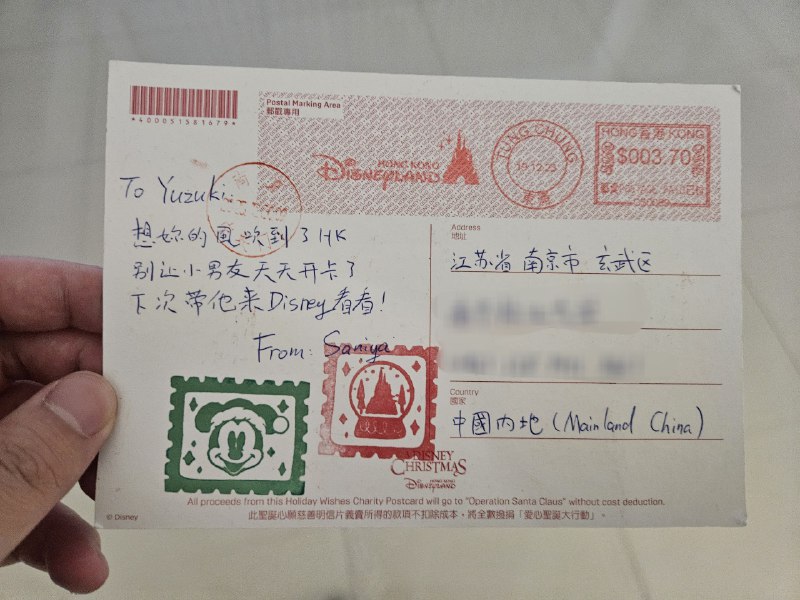 *400051581679*
Postal Marking Area
郵戳專用
HONG KONG
DISNEYLAND
TUNG CHUNG
東涌
HONG KONG
$003.70
To Yuzuki:
想妳的風吹到了HK
别让小男友天天开卡了
下次带他来Disney看看!
From: Saniya
Address
地址
江苏省 南京市 玄武区
Country
國家
中國内地 (Mainland China)
A DISNEY
CHRISTMAS
HONG KONG
DISNEYLAND
All proceeds from this Holiday Wishes Charity Postcard will go to "Operation Santa Claus" without cost deduction.
此聖誕心願慈善明信片義賣所得的款項不扣除成本，將全數撥捐「愛心聖誕大行動」。
© Disney